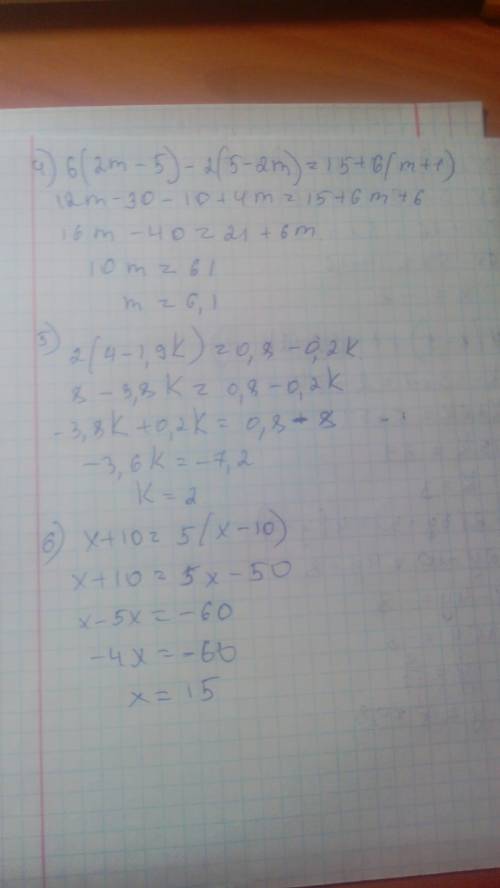 4) 6(2m-5)-2(5-2m)=15+6(m+1)
12m-30-10+4m=15+6m+6
16m-40=21+6m
10m=61
m=6,1
5) 2(4-1,9k)=0,8-0,2k
8-3,8k=0,8-0,2k
-3,8k+0,2k=0,8-8
-3,6k=-7,2
k=2
6) x+10=5(x-10)
x+10=5x-50
x-5x=-60
-4x=-60
x=15